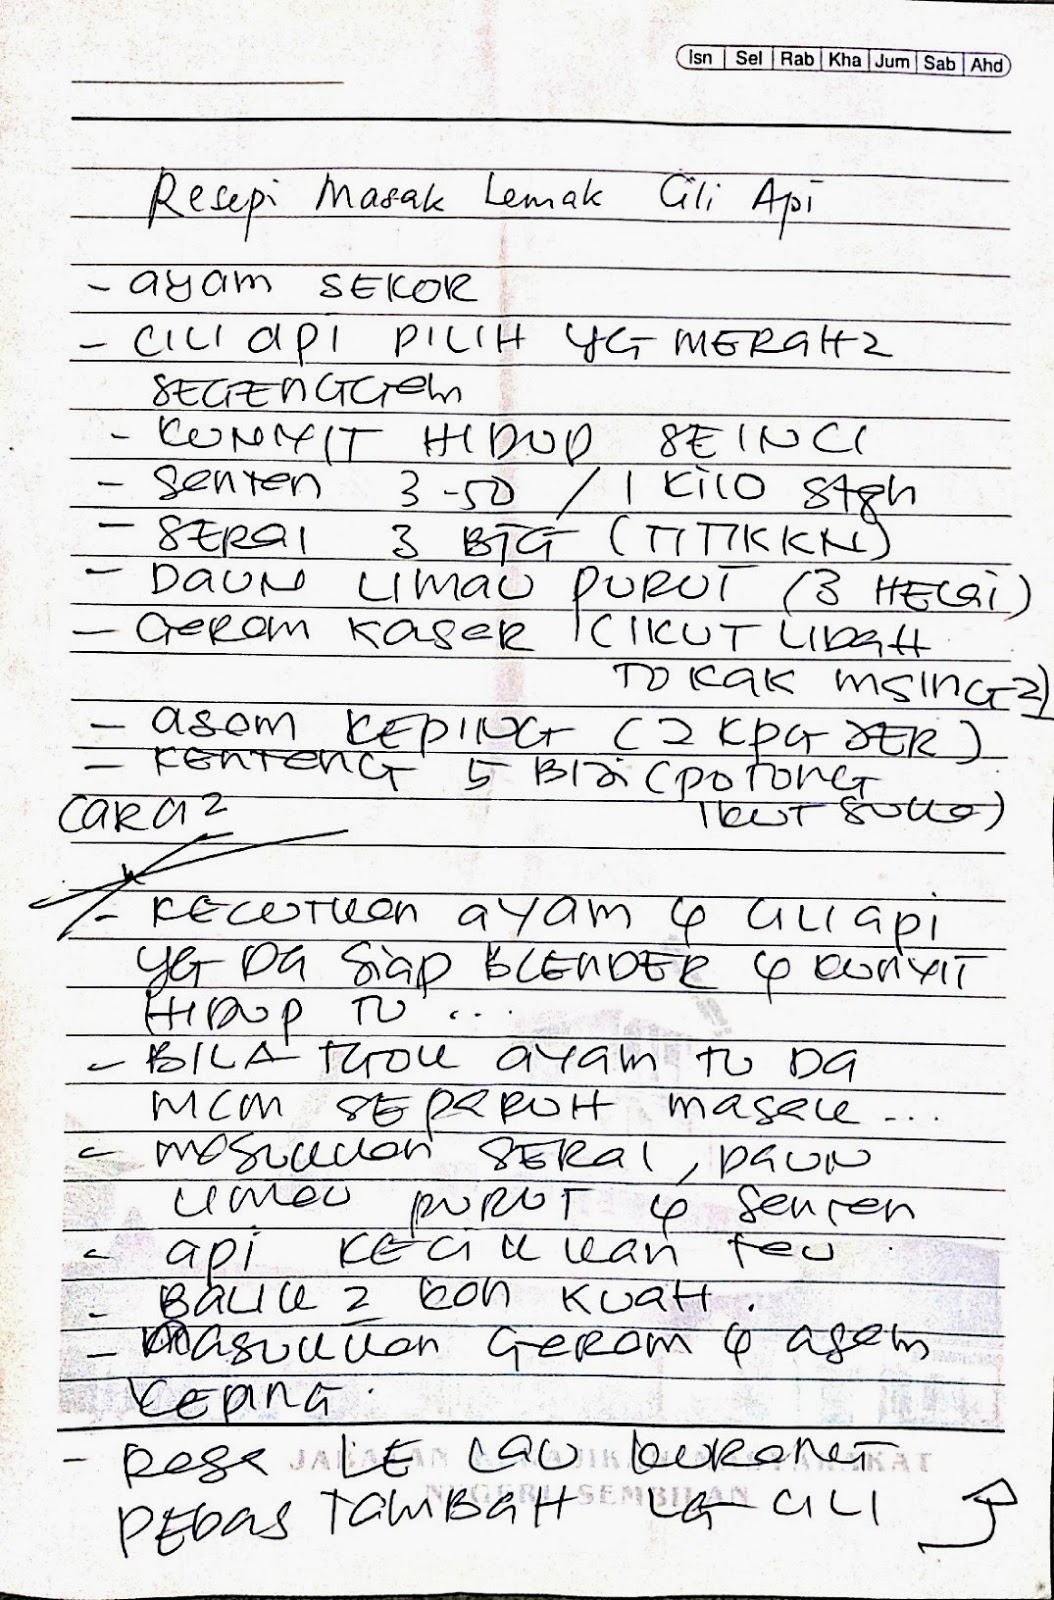 Isn Sel Rab Kha Jum Sab Ahd
Resepi Masak Lemak Cili Api
- ayam SEKOR
- CILI API PILIH YG MERAH2
SEGENGGem
- KUNYIT HIDUP SEINCI
- Santen 3-50 / 1 KILO Stgh
- SERAI 3 BTG (TITIKKN)
- DAUN LIMAU PURUT (3 HELAI)
- Garam Kasar (IKUT LIDAH
TOKAK MSING2)
- asam KEPING (2 KPG JER)
- KENTANG 5 BIJI (POTONG
IKUT SUKA)
CARA2
- KECUTKAN AYAM & CILI API
YG DA SIAP BLENDER & KUNYIT
HIDUP TU ...
- BILA TGOK AYAM TU DA
MCM SEPARUH MASAK ...
- MASUKKAN SERAI, DAUN
LIMAU PURUT & Santen
- API KECIKKAN TAU
- BALIK2 KAN KUAH.
- MASUKKAN Garam & asam
KEPING.
- RASE LE LAU KURANG
PEDAS TAMBAH LA CILI
JABATAN KEMAJIKAN MASYARAKAT
NEGERI SEMBILAN